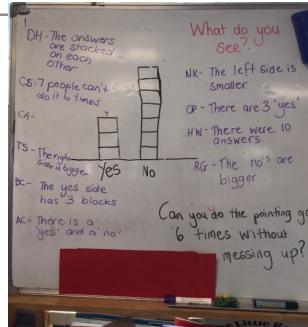 DH - The answers
are stacked
on each
other
CS: 7 people can't
do it 6 times
CA-
TS - The right
side is bigger
BC - The yes side
has 3 blocks
AC - There is a
'yes' and a 'no'
Yes
No
What do you
see?
NK - The left side is
smaller
OP - There are 3 'yes'
HW - There were 10
answers
RG - The no's are
bigger
Can you do the pointing ga
6 times without
messing up?